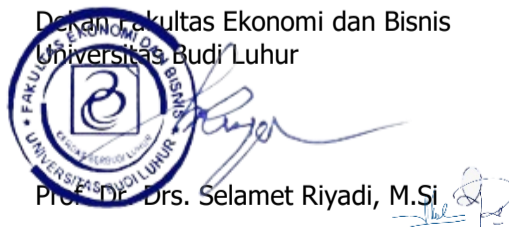 Dekan Fakultas Ekonomi dan Bisnis
Universitas Budi Luhur
FAKULTAS EKONOMI DAN BISNIS
UNIVERSITAS BUDI LUHUR
Prof. Dr. Drs. Selamet Riyadi, M.Si